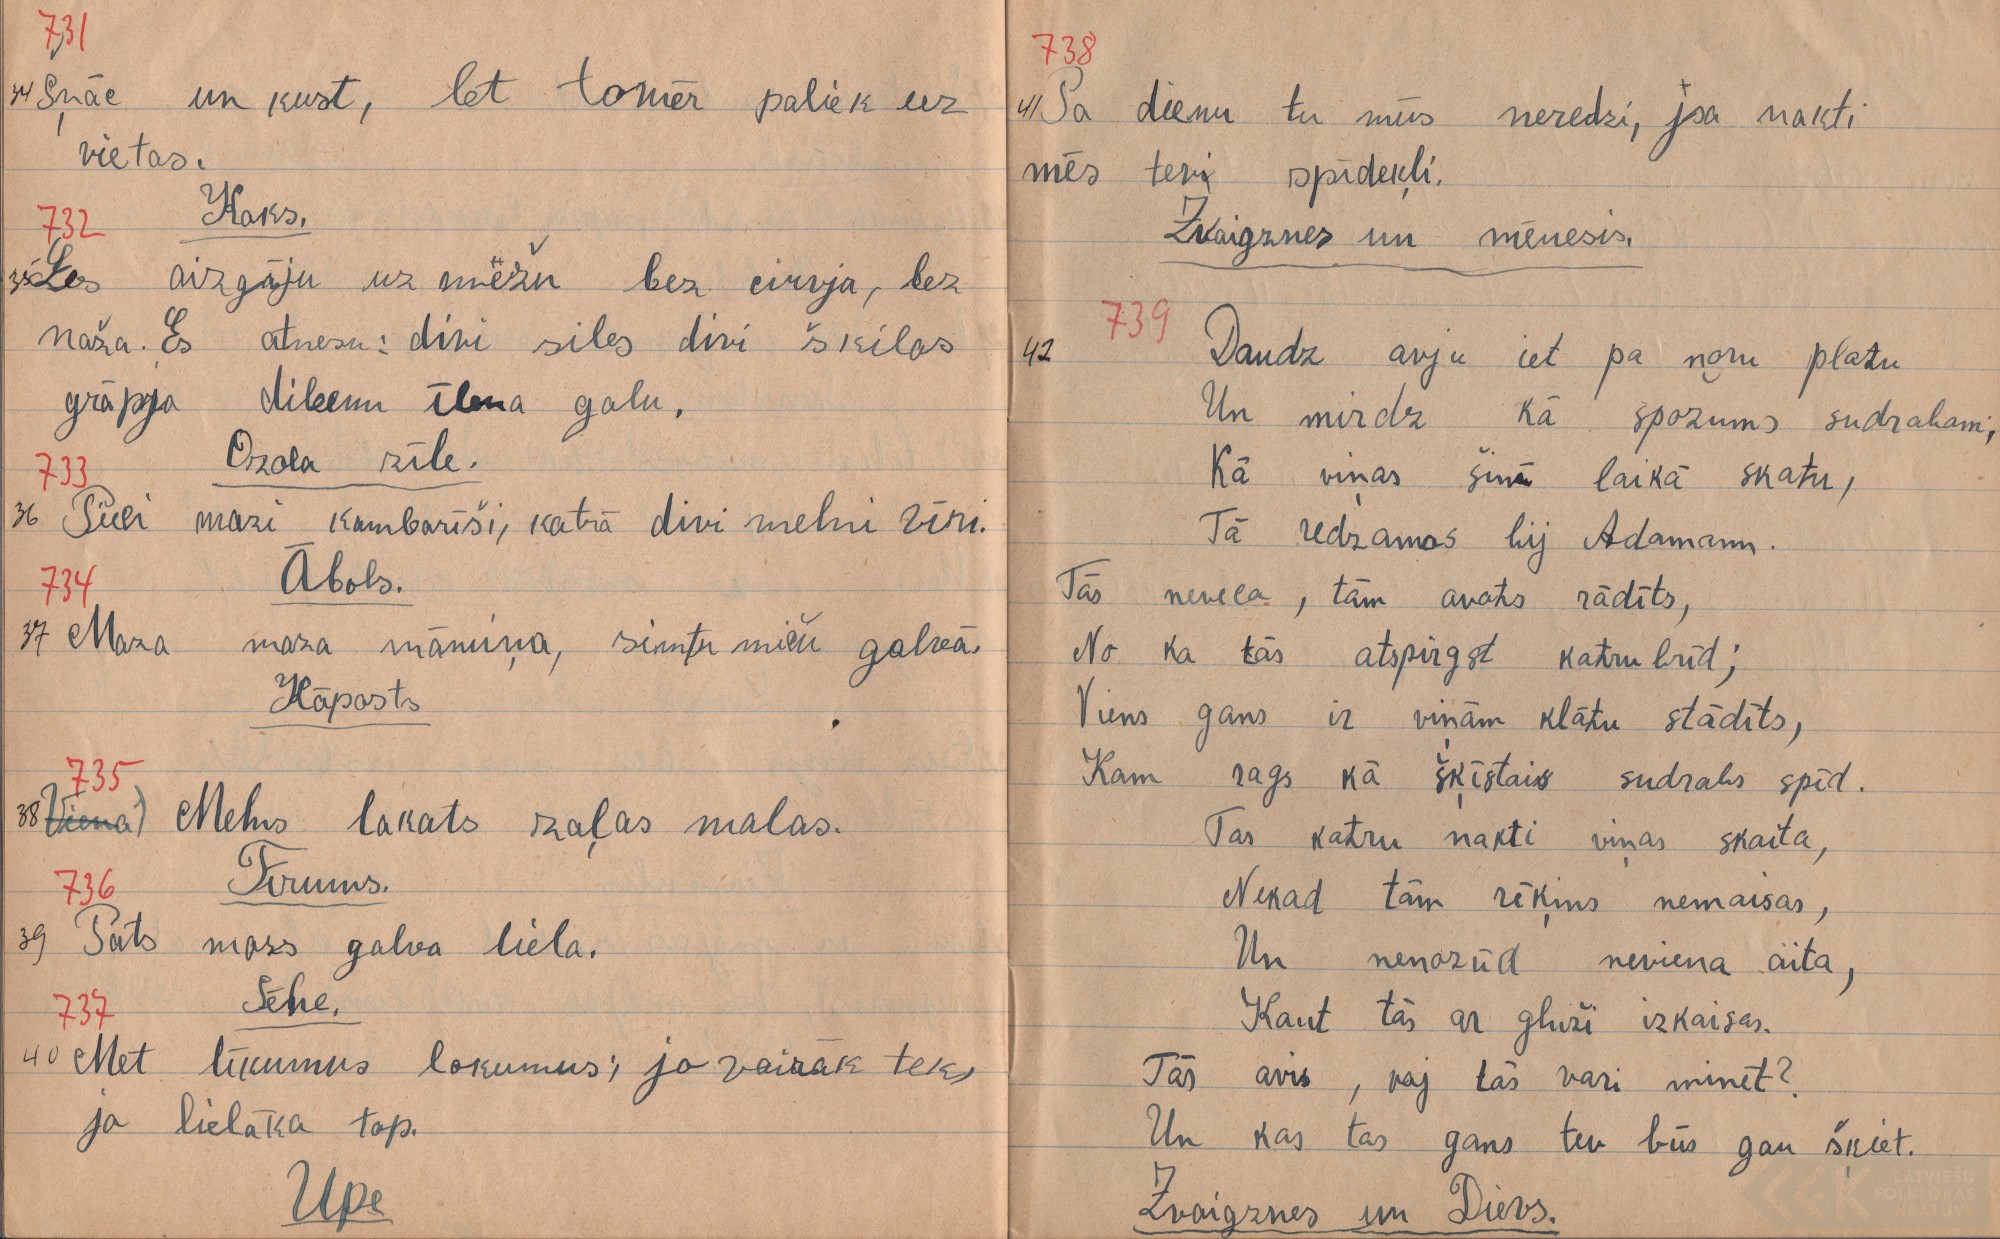 731
34 Šņāc un kust, bet tomēr paliek uz
vietas.
Koks.
732
35 Es aizgāju uz mežu bez cirvja, bez
naža. Es atnesu: divi siles divi šķilas
grāpja dibenu īlena galu.
Ozola zīle.
733
36 Pieci mazi kambarīši, katrā divi melni vīri.
Ābols.
734
37 Maza maza māmiņa, simtu miču galvā.
Kāposts
735
38 Viena) Melns lakats zaļas malas.
Tīrums.
736
39 Pats mazs galva liela.
Sēne.
737
40 Met līkumus lokumus; jo vairāk tek,
jo lielāka top.
Upe
738
41 Pa dienu tu mūs neredzi, pa nakti
mēs tevi spīdekļi.
Zvaigznes un mēnesis.
739
42 Daudz avju iet pa noru platu
Un mirdz kā spozums sudrabam,
Kā viņas šinī laikā skatu,
Tā redzamas bij Adamam.
Tās neveca, tām avots rādīts,
No ka tās atspirgst katru brīd;
Viens gans ir viņām klātu stādīts,
Kam rags kā šķīstais sudrabs spīd.
Tas katru nakti viņas skaita,
Nekad tām rēķins nemaisas,
Un nenozūd neviena aita,
Kaut tās ar gluži izkaisas.
Tās avis, vaj tās vari minēt?
Un kas tas gans tev būs gan šķiet.
Zvaigznes un Dievs.
LATVIEŠU
FOLKLORAS
KRĀTUVE